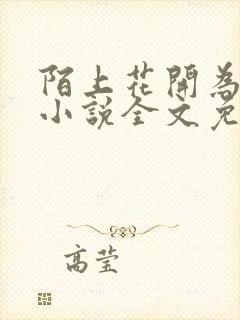 陌上花開為
小說全文免
高莹